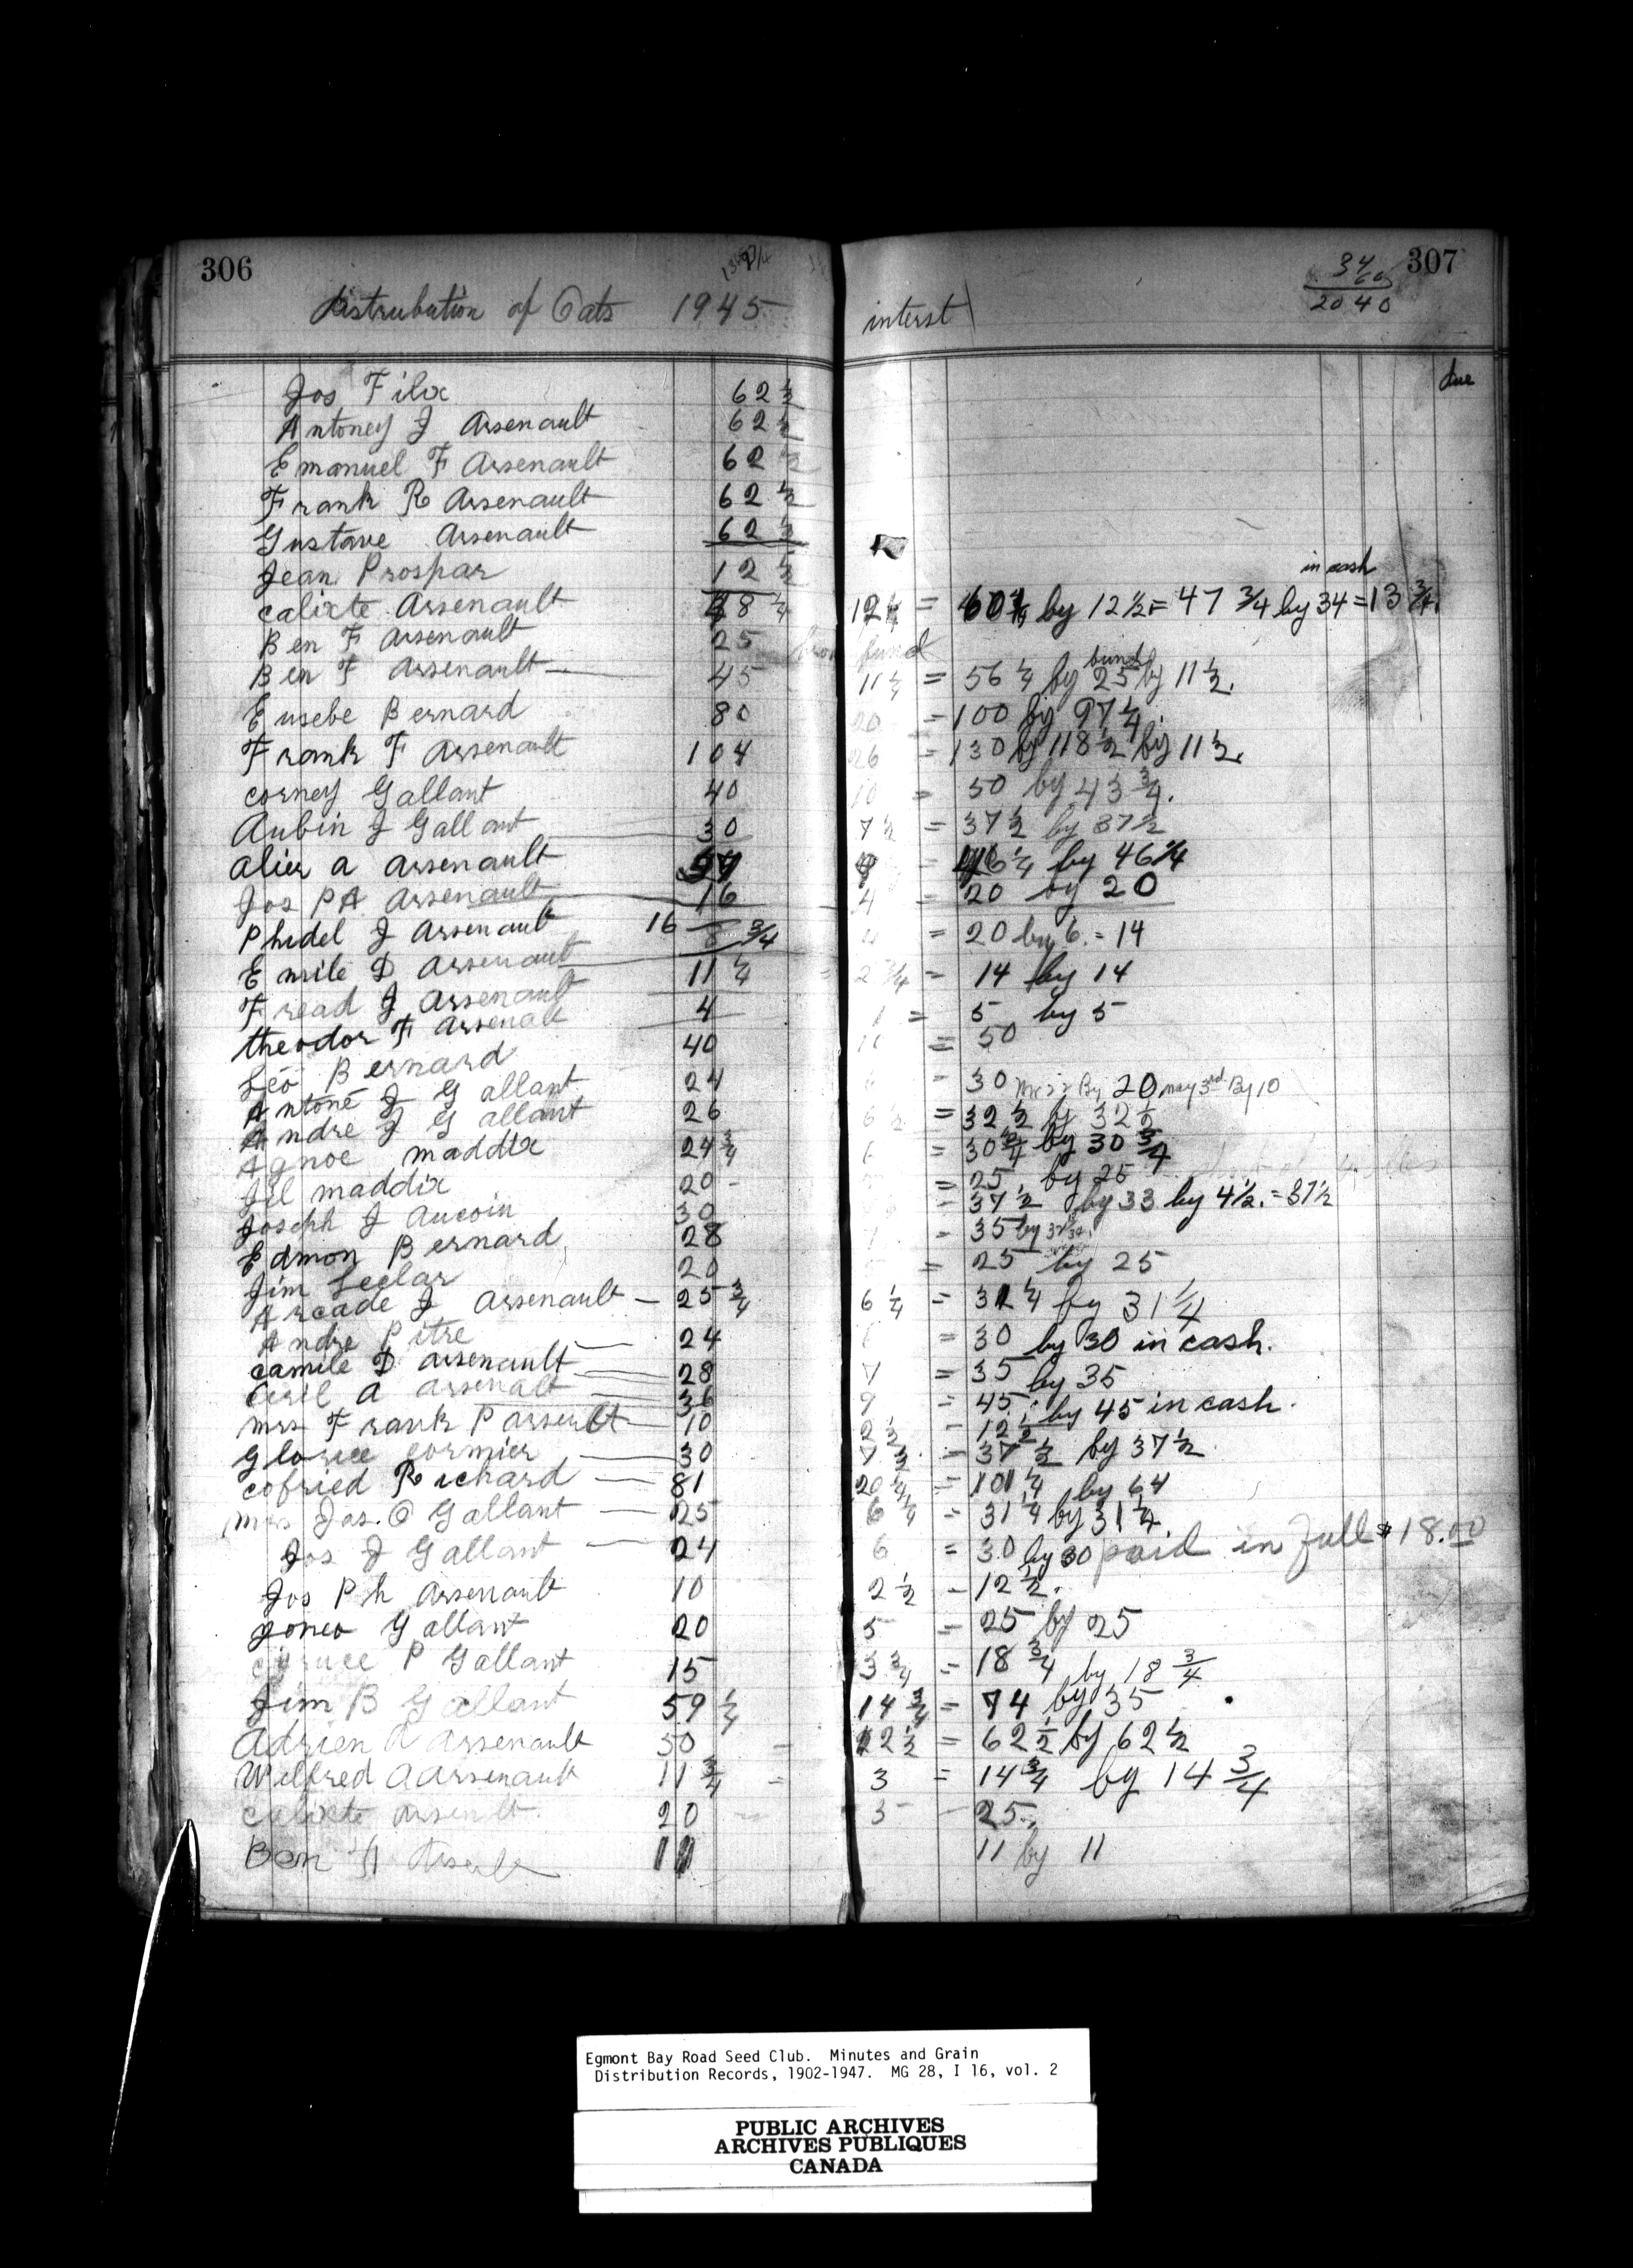 306
Distrubution of Oats 1945
Jos Filix 62 1/2
Antoney J Arsenault 62 1/2
Emanuel F Arsenault 62 1/2
Frank R Arsenault 62 1/2
Gustave Arsenault 62 1/2
Jean Prospar 12 1/2
calixte Arsenault 48 1/4
Ben F Arsenault 25
Ben F Arsenault 45
Eusebe Bernard 80
Frank F Arsenault 104
corney Gallant 40
Aubin J Gallant 30
alier a arsenault 37
Jos PA Arsenault 16
Phidel J Arsenault 16 8 3/4
Emile D Arsenault 11 1/4
Fread J Arsenault 4
theodor F Arsenalt 40
Leo Bernard 24
Antone J Gallant 26
Andre J Gallant 24 3/4
Agnoe maddix 20
Jil maddix 30
Joseph J Aucoin 28
Edmon Bernard 20
Jim Leclar
Arcade J Arsenault 25 3/4
Andre Pitre 24
camile D arsenault 28
Ciril a arsenalt 36
mrs Frank P arsenult 10
Glorice cormier 30
cofried Richard 81
mrs Jos. O Gallant 25
Jos J Gallant 24
Jos Ph Arsenault 10
Joneo Gallant 20
P Gallant 15
Jim B Gallant 59 1/4
Adrien A Arsenault 50
Wilfred A Arsenault 11 3/4
calixte arsenlt 20
Ben 11
307
34
60
20 40
interst
due
in cash
12 1/4 = 60 1/4 by 12 1/2 = 47 3/4 by 34 = 13 3/4.
fund
11 1/4 = 56 1/4 by 25 by 11 1/2.
20 = 100 by 97 1/4.
26 = 130 by 118 1/2 by 11 1/2.
10 = 50 by 43 3/4.
7 1/2 = 37 1/2 by 37 1/2
9 = 46 1/4 by 46 1/4
4 = 20 by 20
4 = 20 by 6. = 14
2 3/4 = 14 by 14
1 = 5 by 5
10 = 50
6 = 30 By 20 may 3rd By 10
6 1/2 = 32 1/2 by 32 1/2
6 = 30 3/4 by 30 3/4
5 = 25 by 25
= 37 1/2 by 33 by 4 1/2. = 37 1/2
7 = 35 by
5 = 25 by 25
6 1/4 = 31 1/4 by 31 1/4
6 = 30 by 30 in cash.
7 = 35 by 35
9 = 45 by 45 in cash.
2 1/2 = 12 1/2
7 1/2 = 37 1/2 by 37 1/2
20 1/4 = 101 1/4 by 64
6 1/4 = 31 1/4 by 31 1/4.
6 = 30 by 30 paid in full $18.00
2 1/2 = 12 1/2.
5 = 25 by 25
3 3/4 = 18 3/4 by 18 3/4
14 3/4 = 74 by 35
12 1/2 = 62 1/2 by 62 1/2
3 = 14 3/4 by 14 3/4
5 25
11 by 11
Egmont Bay Road Seed Club. Minutes and Grain
Distribution Records, 1902-1947. MG 28, I 16, vol. 2
PUBLIC ARCHIVES
ARCHIVES PUBLIQUES
CANADA